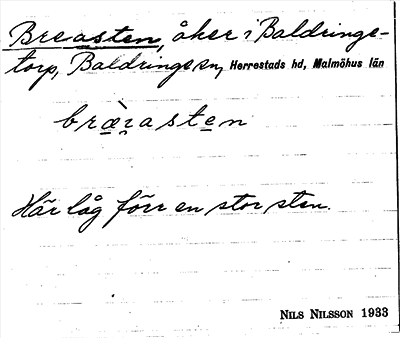 Breasten, åker i Baldringe-
torp, Baldringe sn, Herrestads hd, Malmöhus län
bræ̀ṛasten
Här låg förr en stor sten.
NILS NILSSON 1933